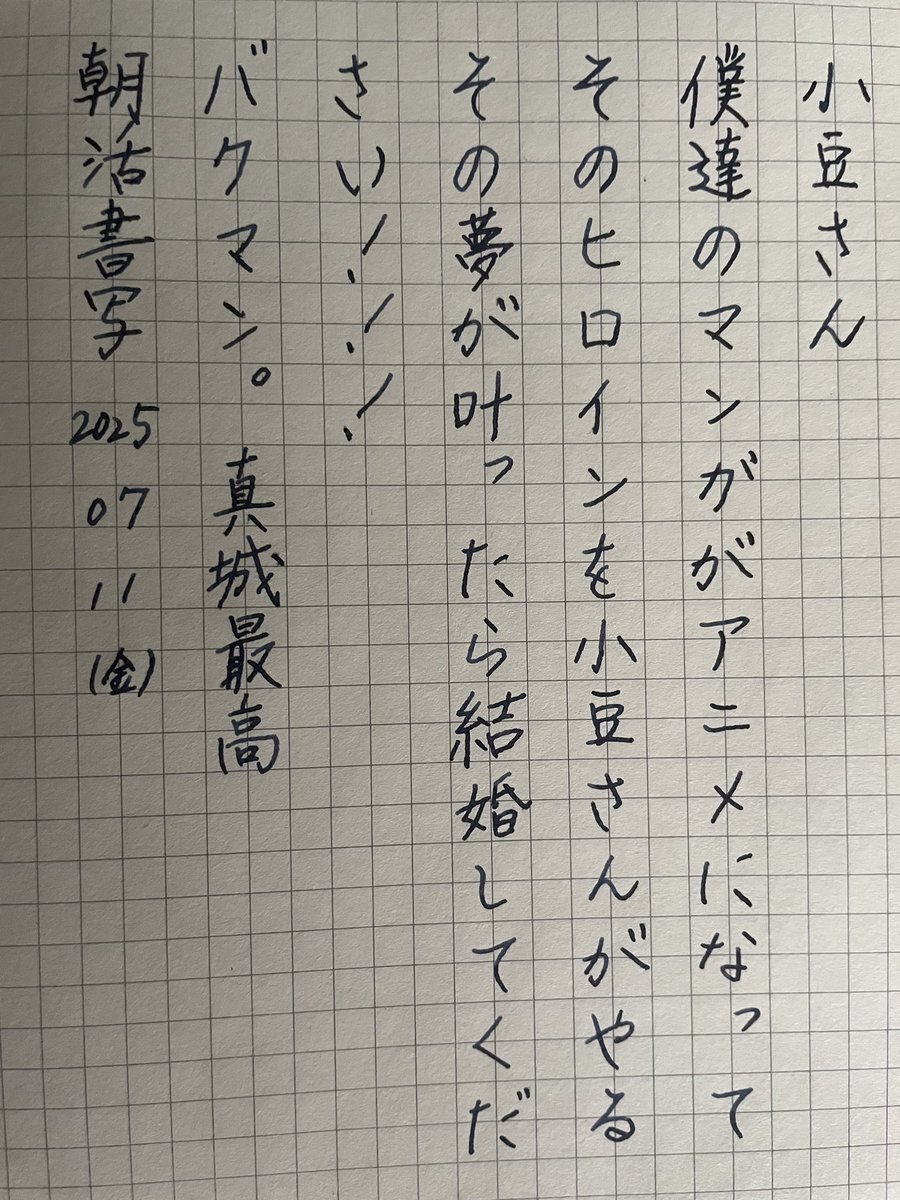 小豆さん
僕達のマンががアニメになって
そのヒロインを小豆さんがやる
その夢が叶ったら結婚してくだ
さい！！！
バクマン。 真城最高
朝活書写 2025 07 11 (金)